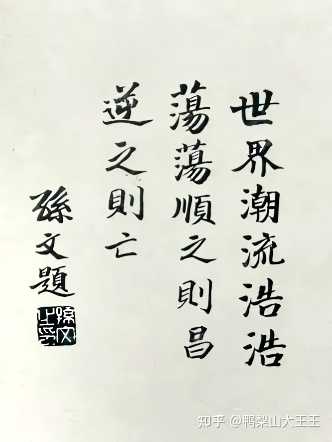 世界潮流浩浩
蕩蕩順之則昌
逆之則亡
孫文題
孫文之印
知乎 @鸭梨山大王王